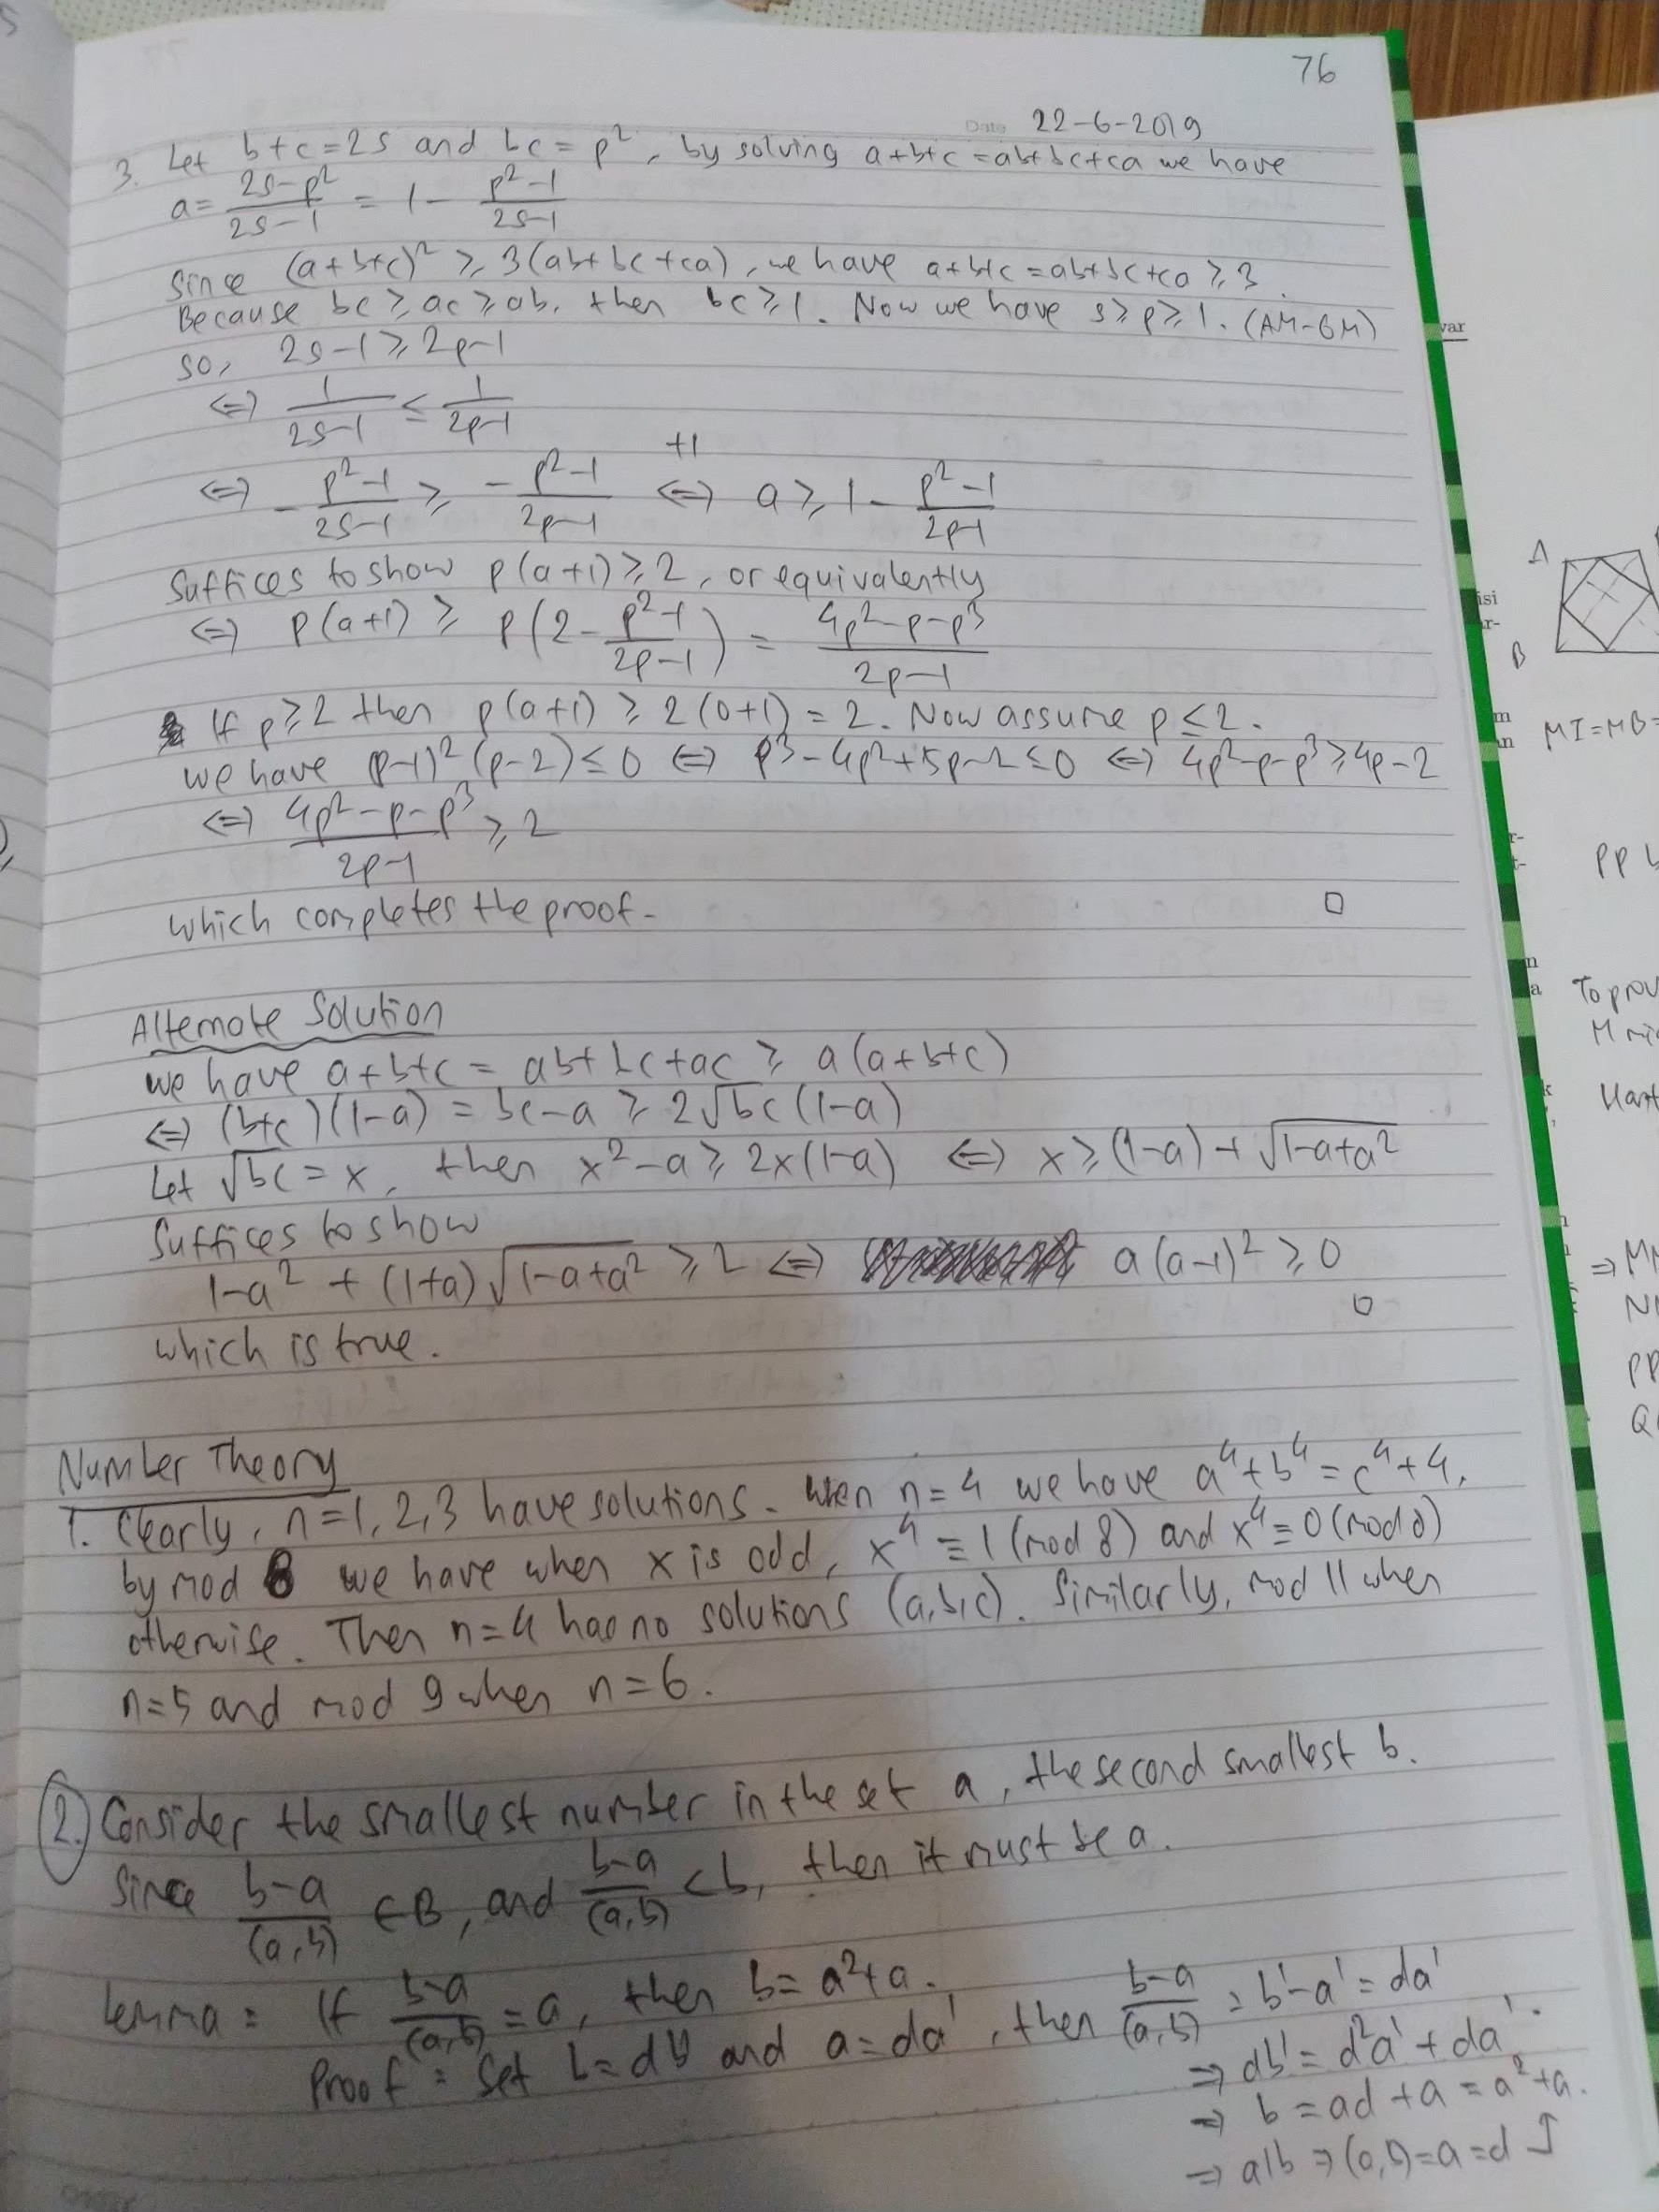 76
Date 22-6-2019
3. Let b+c=2s and bc=p², by solving a+b+c=ab+bc+ca we have
a = (2s-p²)/(2s-1) = 1 - (p²-1)/(2s-1)
Since (a+b+c)² ≥ 3(ab+bc+ca), we have a+b+c=ab+bc+ca ≥ 3.
Because bc ≥ ac ≥ ab, then bc ≥ 1. Now we have s ≥ p ≥ 1. (AM-GM)
so, 2s-1 ≥ 2p-1
⇔ 1/(2s-1) ≤ 1/(2p-1)
⇔ -(p²-1)/(2s-1) ≥ -(p²-1)/(2p-1) +1 ⇔ a ≥ 1 - (p²-1)/(2p-1)
Suffices to show p(a+1) ≥ 2, or equivalently
⇔ p(a+1) ≥ p(2 - (p²-1)/(2p-1)) = (4p²-p-p³)/(2p-1)
If p ≥ 2 then p(a+1) ≥ 2(0+1) = 2. Now assume p ≤ 2.
We have (p-1)²(p-2) ≤ 0 ⇔ p³-4p²+5p-2 ≤ 0 ⇔ 4p²-p-p³ ≥ 4p-2
⇔ (4p²-p-p³)/(2p-1) ≥ 2
which completes the proof. □
Alternate Solution
We have a+b+c = ab+bc+ac ≥ a(a+b+c)
⇔ (b+c)(1-a) = bc-a ≥ 2√bc(1-a)
Let √bc = x, then x²-a ≥ 2x(1-a) ⇔ x ≥ (1-a) + √(1-a+a²)
Suffices to show
1-a² + (1+a)√(1-a+a²) ≥ 2 ⇔ a(a-1)² ≥ 0
which is true. □
Number Theory
1. Clearly, n=1,2,3 have solutions. When n=4 we have a⁴+b⁴=c⁴+4.
by mod 8 we have when x is odd, x⁴ ≡ 1 (mod 8) and x⁴ ≡ 0 (mod 8)
otherwise. Then n=4 has no solutions (a,b,c). Similarly, mod 11 when
n=5 and mod 9 when n=6.
2. Consider the smallest number in the set a, the second smallest b.
Since (b-a)/(a,b) ∈ B, and (b-a)/(a,b) < b, then it must be a.
Lemma = If (b-a)/(a,b) = a, then b = a²+a.
Proof : Set b=db' and a=da', then (b-a)/(a,b) = b'-a' = da'
⇒ db' = d²a' + da'.
⇒ b = ad + a = a²+a.
⇒ a|b ⇒ (a,b)=a=d
var
A
isi
r-
B
m
n
MI=MB=
r-
t-
PP
n
a
To prov
k
⇒
PP